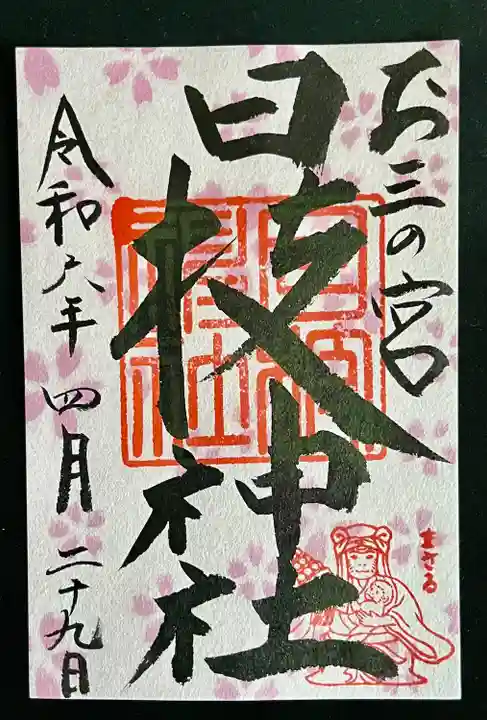 お三の宮
日枝神社
令和六年四月二十九日
まさる